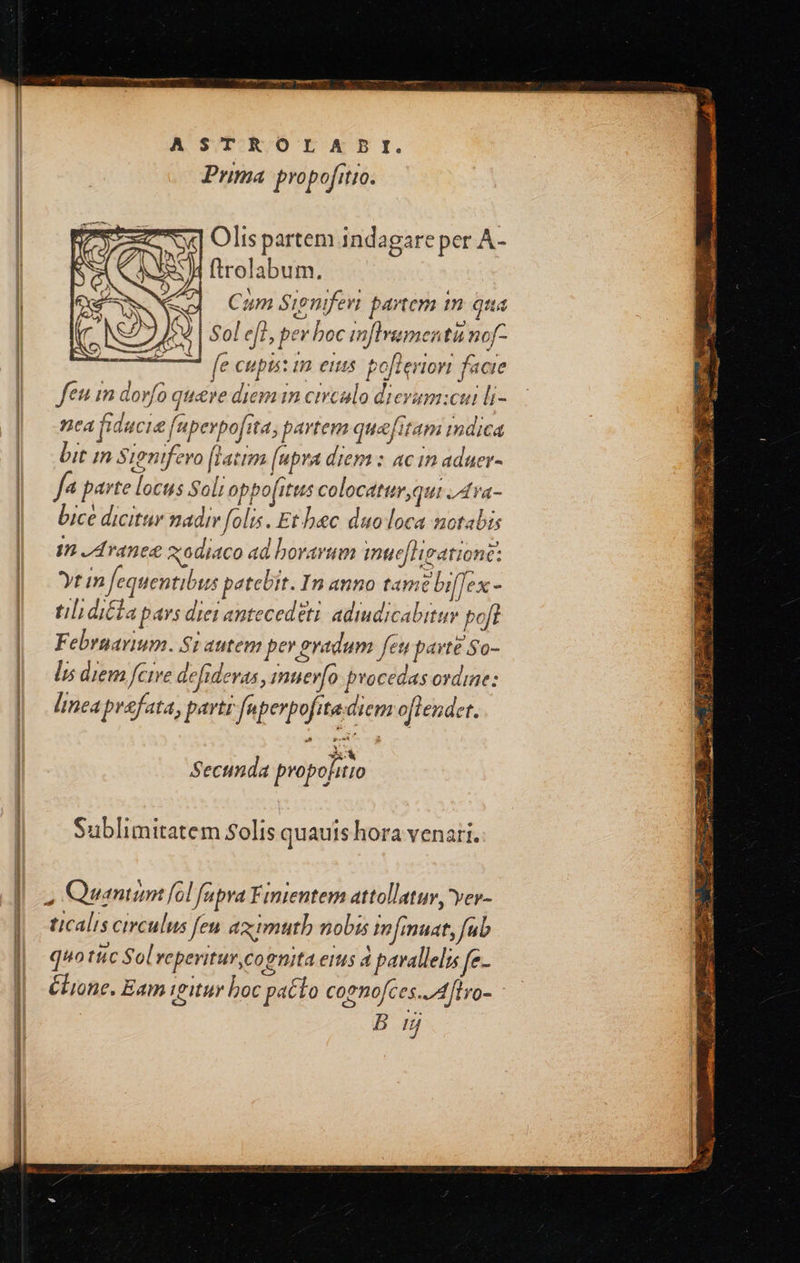 ASTROLABI.
Prima propoſitio.
SOlis partem indagare per A-
ſtrolabum.
Cùm Signiferi partem in qua
Sol eſt, per hoc inſtrumentũ noſ-
ſe cupis: in eius poſteriori facie
ſeu in dorſo quære diem in circulo dierum: cui li-
nea fiduciæ ſuperpoſita, partem quæſitam indica
bit in Signifero ſtatim ſupra diem : ac in aduer-
ſa parte locus Soli oppoſitus colocatur, qui Ara-
bicè dicitur nadir ſolis. Et hæc duo loca notabis
in Araneæ zodiaco ad horarum inueſtigationẽ:
vt in ſequentibus patebit. In anno tamẽ biſſex-
tili dicta pars diei antecedẽti adiudicabitur poſt
Februarium. Si autem per gradum ſeu partẽ So-
lis diem ſcire deſideras, inuerſo procedas ordine:
linea præfata, parti ſuperpoſita diem oſtendet.
Secunda propoſitio
Sublimitatem Solis quauis hora venari.
Quantùm ſol ſupra Finientem attollatur, ver-
ticalis circulus ſeu azimuth nobis inſinuat, ſub
quo tũc Sol reperitur, cognita eius à parallelis ſe-
ctione. Eam igitur hoc pacto cognoſces. Aſtro-
B iij